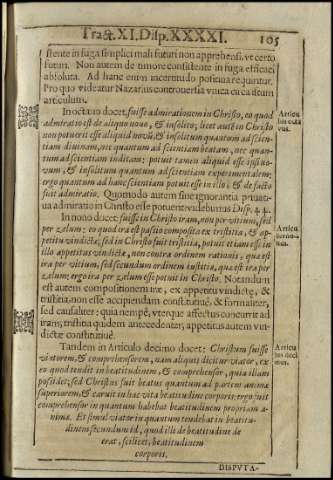 Tract. XI. Disp. XXXXI. 105
stente in fuga simplici mali futuri non apprehensi, vt certo
futuri. Non autem de timore consistente in fuga efficaci
absoluta. Ad hanc enim incertitudo positiua requiritur.
Pro quo videatur Nazarius controuersia vnica circa istum
articulum.
In octauo docet, fuisse admirationem in Christo, eo quod
admiratio est de aliquo nouo, & insolito; licet autem in Christo
non potuerit esse aliquid nouũ, & insolitum quantum ad scien-
tiam diuinam, nec quantum ad scientiam beatam, nec quan-
tum ad scientiam inditam; potuit tamen aliquid esse insi nouo-
um, & insolitum quantum ad scientiam experimentalem;
ergo quantum ad hanc scientiam potuit esse in illo; & de facto
fuit admiratio. Quomodo autem sine ignorantia priuati-
ua admiratio in Christo esse potuerit videbimus Disp. 44.
In nono docet fuisse in Christo iram, non per vitium, sed
per zelum; eo quod ira est passio composita ex tristitia, & ap-
petitu vindictæ, sed in Christo fuit tristitia, potuit etiam esse in
illo appetitus vindictæ, non contra ordinem rationis, qua est
ira per vitium, sed secundum ordinem iustitiæ, qua est ira per
zelum; ergo ira per zelum esse potuit in Christo. Notandum
est autem compositionem iræ, ex appetitu vindictæ, &
tristitia, non esse accipiendam constitutiuè, & formaliter,
sed causaliter: quia nempè, vterque affectus concurrit ad
iram; tristitia quidem antecedenter, appetitus autem vin-
dictæ constitutiuè.
Tandem in Articulo decimo docet: Christum fuisse
viatorem, & comprehensorem, nam aliquis dicitur viator, ex
eo quod tendit in beatitudinem, & comprehensor, quia illam
possidet; sed Christus fuit beatus quantum ad partem animæ
superiorem, & caruit in hac vita beatitudine corporis; ergo fuit
comprehensor in quantum habebat beatitudinem propriam a-
nimæ. Et simul viator in quantum tendebat in beatitu-
dinem secundum id, quod illi de beatitudine de
erat, scilicet, beatitudinem
corporis.
Articu
lus octa
uus.
Articu
Articu
lus deci
mus.
DISPVTA-